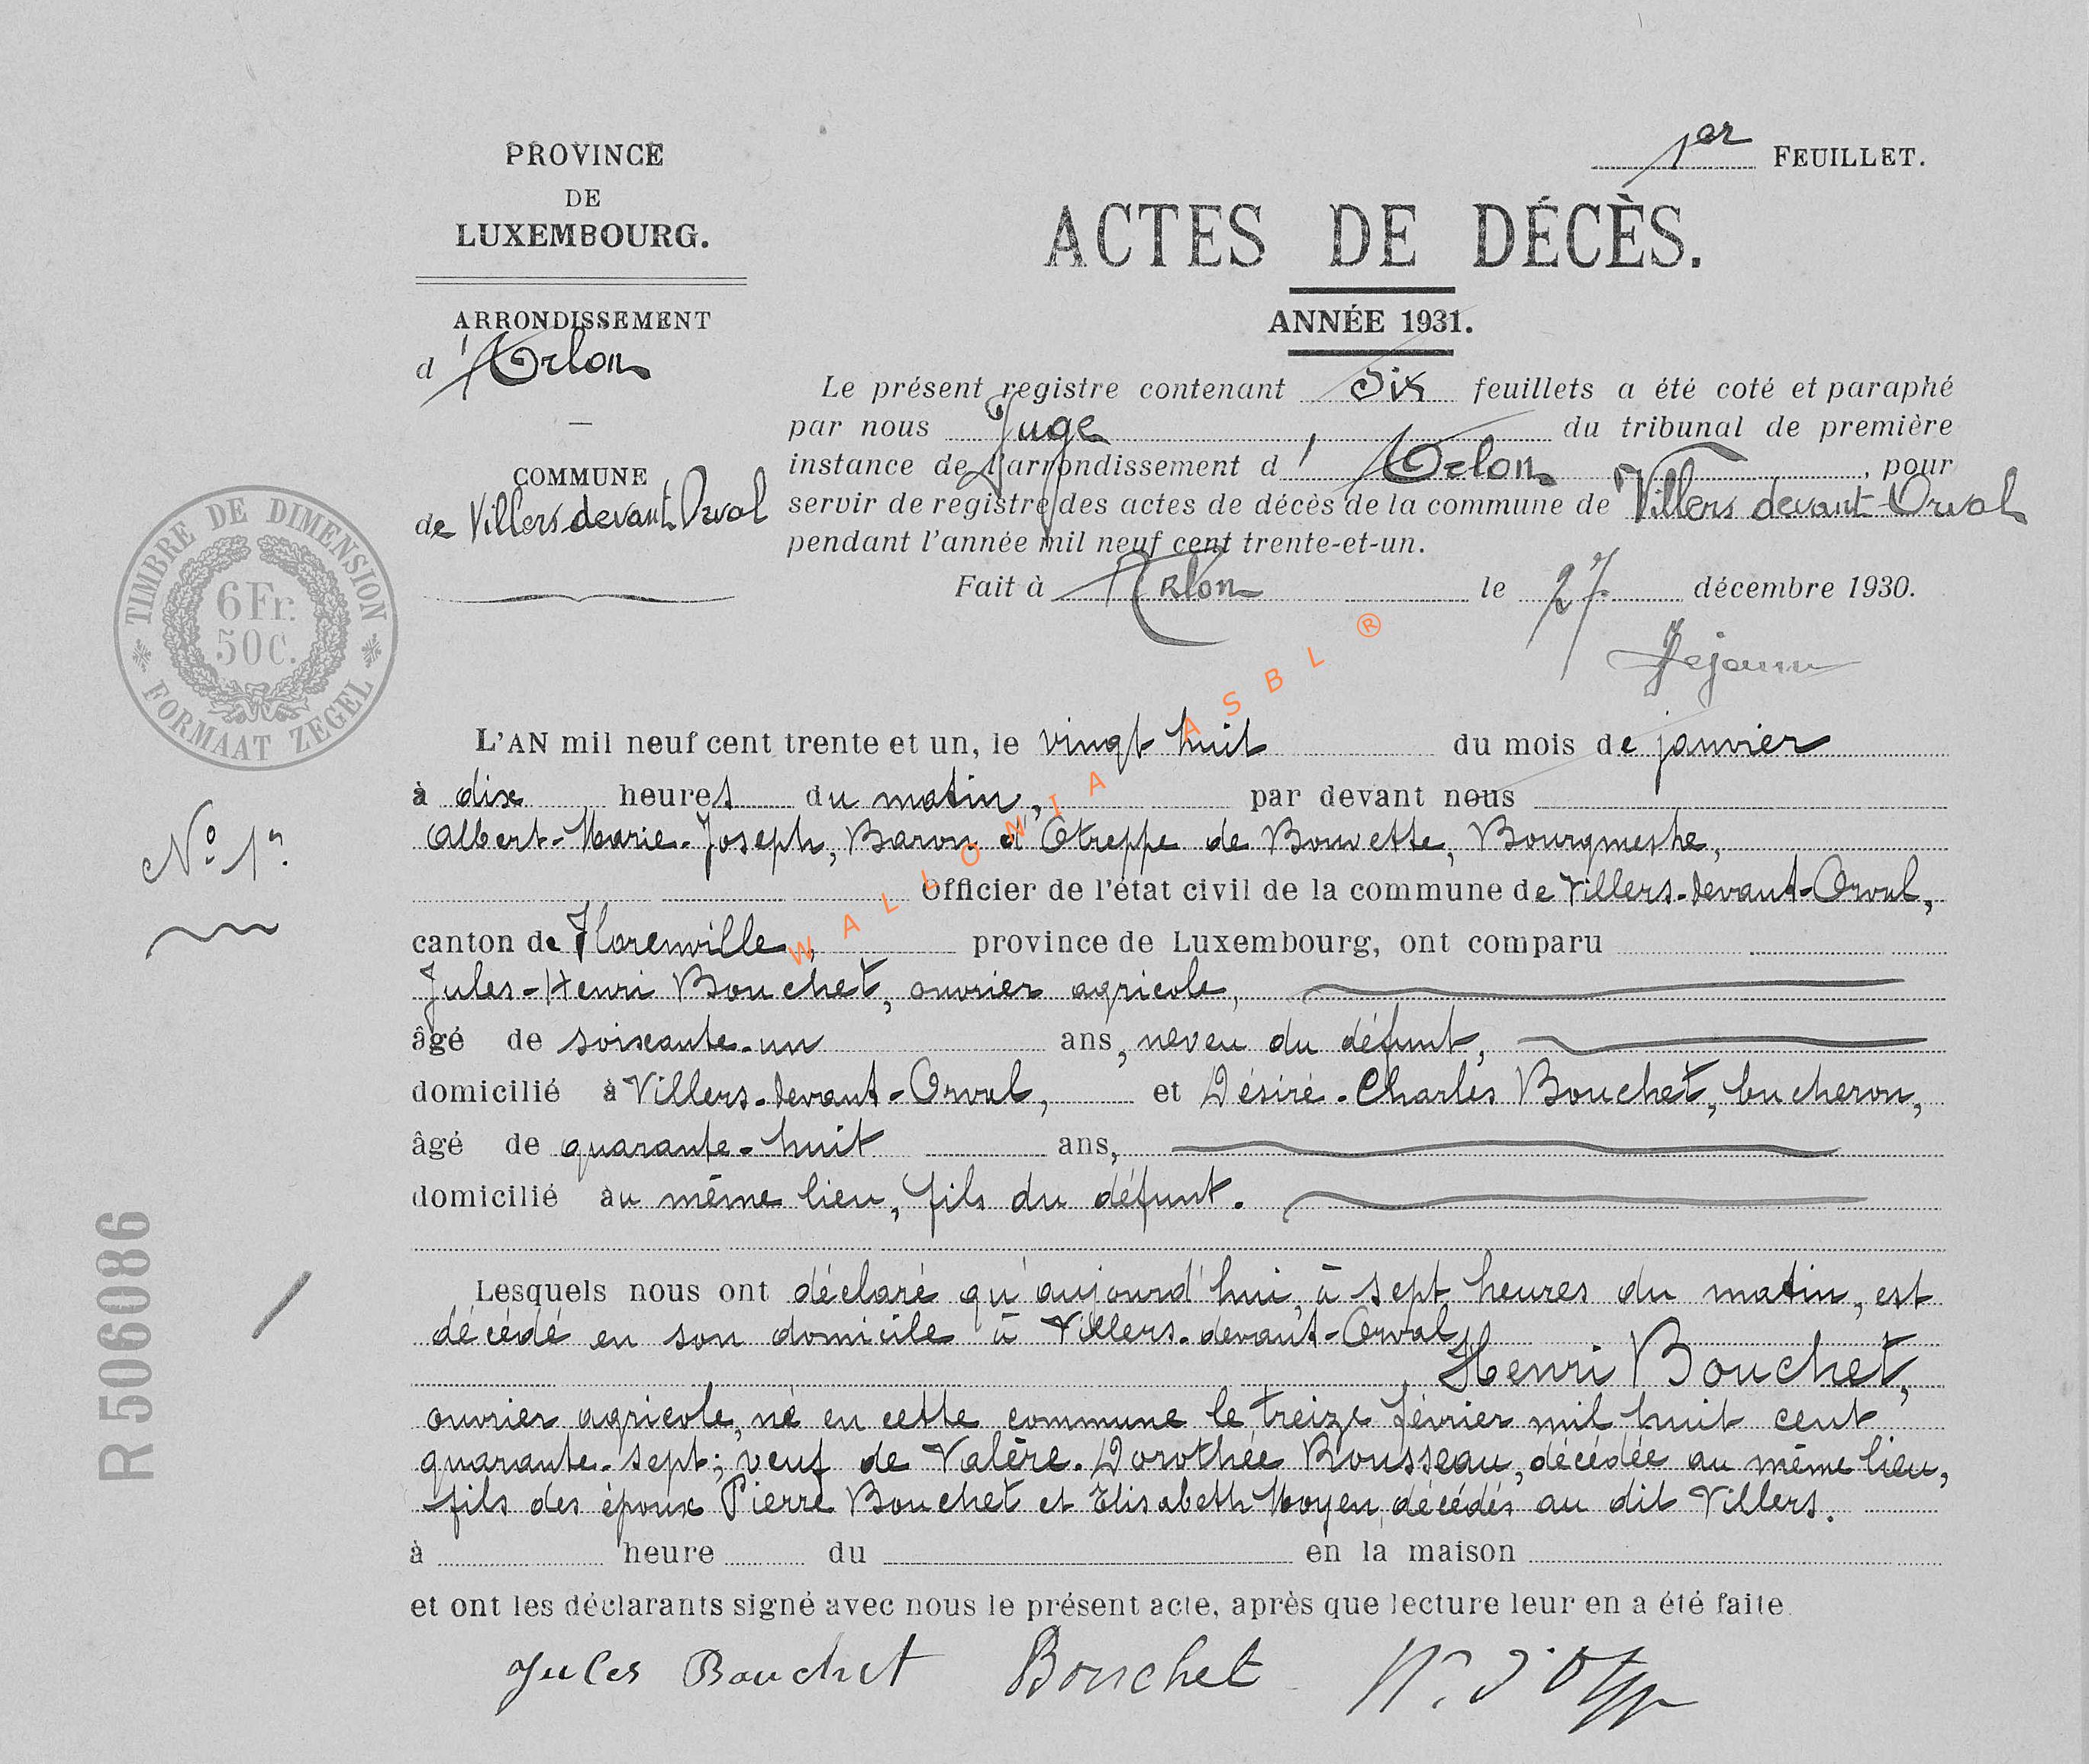 1er FEUILLET.
PROVINCE
DE
LUXEMBOURG.
ARRONDISSEMENT
d'Arlon
COMMUNE
de Villers devant Orval
ACTES DE DÉCÈS.
ANNÉE 1931.
Le présent registre contenant Six feuillets a été coté et paraphé
par nous Juge du tribunal de première
instance de l'arrondissement d' Arlon, pour
servir de registre des actes de décès de la commune de Villers devant Orval
pendant l'année mil neuf cent trente-et-un.
Fait à Arlon le 27 décembre 1930.
TIMBRE DE DIMENSION
6 Fr.
50 C.
FORMAAT ZEGEL
WALLONIA ASBL ®
L'AN mil neuf cent trente et un, le vingt huit du mois de janvier
à dix heures du matin, par devant nous
Albert-Marie-Joseph, Baron d'Otreppe de Bouvette, Bourgmestre,
Officier de l'état civil de la commune de Villers-devant-Orval,
canton de Florenville, province de Luxembourg, ont comparu
N° 1
Jules-Henri Bouchet, ouvrier agricole,
âgé de soixante-un ans, neveu du défunt,
domicilié à Villers-devant-Orval, et Désiré-Charles Bouchet, bucheron,
âgé de quarante-huit ans,
domicilié au même lieu, fils du défunt.
R 506086
Lesquels nous ont déclaré qu'aujourd'hui, à sept heures du matin, est
décédé en son domicile à Villers-devant-Orval
Henri Bouchet,
ouvrier agricole, né en cette commune le treize février mil huit cent
quarante-sept; veuf de Valère-Dorothée Rousseau, décédée au même lieu,
fils des époux Pierre Bouchet et Elisabeth Moyen, décédés au dit Villers.
à heure du en la maison
et ont les déclarants signé avec nous le présent acte, après que lecture leur en a été faite.
Jules Bouchet Bouchet